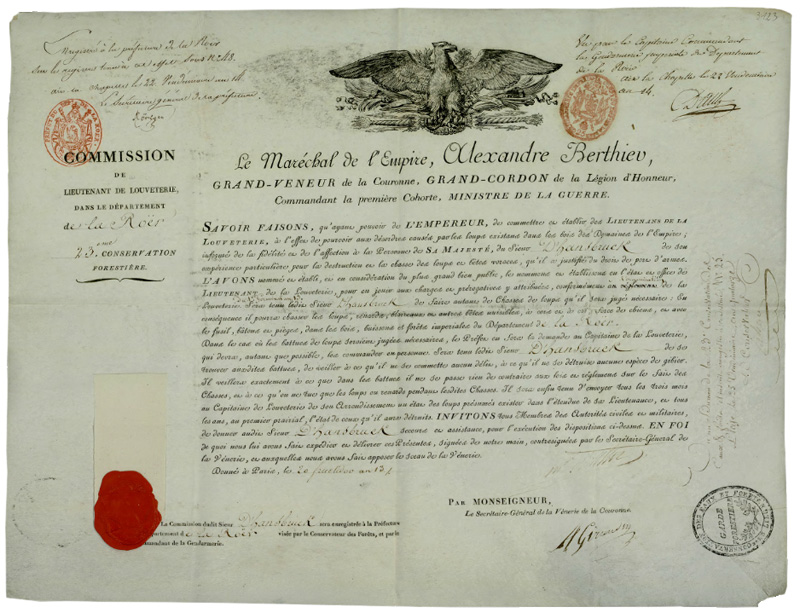 3123
Enregistré à la préfecture de la Roer
sous le numéro
le 22 Vendémiaire an 14.
Le Secrétaire général de la préfecture
Vu par le Capitaine Commandant
la Gendarmerie du Département
de la Roer
aix la Chapelle le 22 Vendémiaire
an 14.
COMMISSION
DE
LIEUTENANT DE LOUVETERIE,
DANS LE DÉPARTEMENT
de la Roër
23.eme CONSERVATION
FORESTIÈRE.
Le Maréchal de l'Empire, Alexandre Berthier,
GRAND-VENEUR de la Couronne, GRAND-CORDON de la Légion d'Honneur,
Commandant la première Cohorte, MINISTRE DE LA GUERRE.
SAVOIR FAISONS, qu'ayant pouvoir de L'EMPEREUR, de commettre et établir des LIEUTENANS DE LA
LOUVETERIE, à l'effet de pourvoir aux désordres causés par les loups existans dans les bois des Domaines de l'Empire;
informés de la fidélité et de l'affection à la Personne de SA MAJESTÉ, du Sieur D'hansbruck de son
expérience particulière pour la destruction et la chasse des loups et bêtes voraces, qu'il a justifié du droit de port d'armes.
L'AVONS nommé et établi, et en considération du plus grand bien public, le nommons et établissons en l'état et office de
LIEUTENANT de la Louveterie, pour en jouir aux charges et prérogatives y attribuées, conformément au règlement de la
Louveterie. Sera tenu ledit Sieur D'hansbruck de faire autant de Chasses de loups qu'il sera jugé nécessaire: En
conséquence il pourra chasser les loups, renards, blaireaux et autres bêtes nuisibles, à cors et à cri, force de chiens, et avec
le fusil, bâtons et pièges, dans les bois, buissons et forêts impériales du Département de la Roër.
Dans le cas où les battues de loups seraient jugées nécessaires, les Préfets en feront la demande au Capitaine de la Louveterie,
qui devra, autant que possible, les commander en personne. Sera tenu ledit Sieur D'hansbruck de se
trouver auxdites battues, de veiller à ce qu'il ne se commette aucun délit, à ce qu'il ne se détruise aucunes espèces de gibier.
Il veillera exactement à ce que dans les battues il ne se passe rien de contraire aux lois et règlement sur le fait des
Chasses, et à ce qu'on ne tue que les loups ou renards pendant lesdites Chasses. Il sera enfin tenu d'envoyer tous les trois mois
au Capitaine de Louveterie de son Arrondissement un état des loups présumés exister dans l'étendue de sa Lieutenance, et tous
les ans, au premier prairial, l'état de ceux qu'il aura détruits. INVITONS tous Membres des Autorités civiles et militaires,
de donner audit Sieur D'hansbruck secours et assistance, pour l'exécution des dispositions ci-dessus. EN FOI
de quoi nous lui avons fait expédier et délivrer ces Présentes, signées de notre main, contresignées par le Secrétaire-Général de
la Vénerie, et auxquelles nous avons fait apposer le sceau de la Vénerie.
Donné à Paris, le 20 fructidor an 13
PAR MONSEIGNEUR,
Le Secrétaire-Général de la Vénerie de la Couronne.
La Commission dudit Sieur D'hansbruck sera enregistrée à la Préfecture
département de la Roër visée par le Conservateur des Forêts, et par le
Commandant de la Gendarmerie.
GARDE
FORESTIER